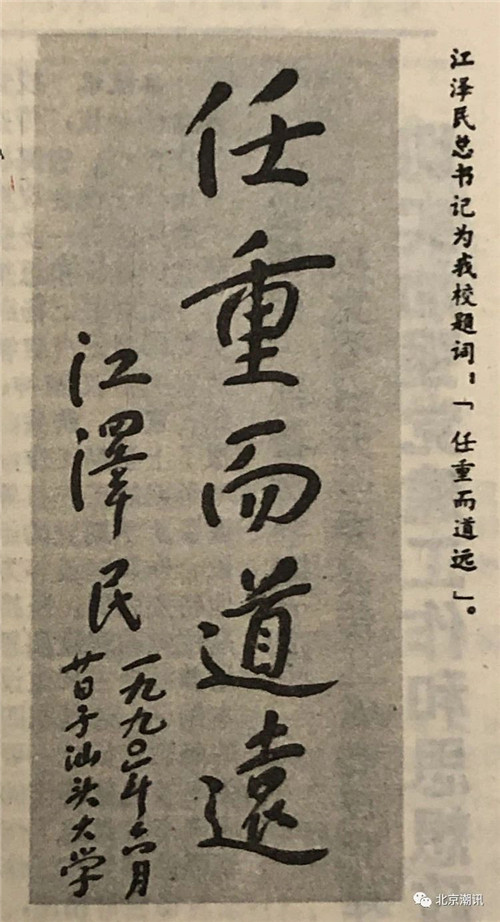 江泽民总书记为我校题词：「任重而道远」。
任重而道遠
江澤民
一九九〇年六月
廿日于汕头大学
北京潮讯